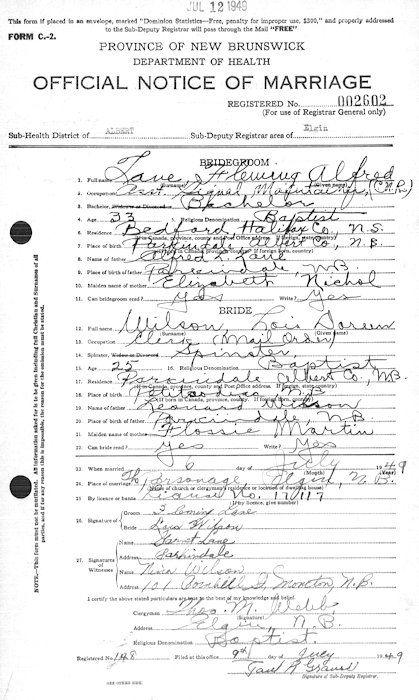 JUL 12 1949
This form if placed in an envelope, marked "Dominion Statistics—Free, penalty for improper use, $300," and properly addressed
to the Sub-Deputy Registrar will pass through the Mail "FREE"
FORM C.-2.
PROVINCE OF NEW BRUNSWICK
DEPARTMENT OF HEALTH
OFFICIAL NOTICE OF MARRIAGE
REGISTERED No. 002602
(For use of Registrar General only)
Sub-Health District of ALBERT Sub-Deputy Registrar area of Elgin
BRIDEGROOM
1. Full name Lane, Fleming Alfred
(Surname) (Given name)
2. Occupation Asst. Signal Maintainer, (C.N.R.)
3. Bachelor, Widower or Divorced Bachelor
4. Age 33 5. Religious Denomination Baptist
6. Residence Bedford, Halifax Co., N.S.
7. Place of birth Parkindale Albert Co., N.B.
8. Name of father Alfred Lane
9. Place of birth of father Parkindale, N.B.
10. Maiden name of mother Elizabeth Nichol
11. Can bridegroom read? Yes Write? Yes
BRIDE
12. Full name Wilson, Lois Doreen
(Surname) (Given name)
13. Occupation Clerk (Mail Order)
14. Spinster, Widow or Divorced Spinster
15. Age 25 16. Religious Denomination Baptist
17. Residence Parkindale Albert Co., N.B.
18. Place of birth Petitcodiac N.B.
19. Name of father Leonard Wilson
20. Place of birth of father Parkindale N.B.
21. Maiden name of mother Flossie Martin
22. Can bride read? Yes Write? Yes
23. When married 6 July 1949
(Month) (Year)
24. Place of marriage The Parsonage, Elgin, N.B.
(Name of church or clergyman's residence or location of dwelling house)
25. By licence or banns License No. 17017
(If by licence, give number)
26. Signature of
Groom Fleming Lane
Bride Lois Wilson
27. Signature of Witnesses
Garnet Lane
Address Parkindale
Nina Wilson
Address 101 St Moncton, N.B.
I certify the above stated particulars are true to the best of my knowledge and belief.
Clergyman Thos. M. Webb
(Signature)
Address Elgin, N.B.
Religious Denomination Baptist.
Registered No. 148 Filed at this office 9th day of July 1949
Signature of Sub-Deputy Registrar
SEE OTHER SIDE.
NOTE.—This form must not be mutilated. All information asked for is to be given including full Christian and Surnames of all
parties, and if for any reason this is impossible, the reason for the omission must be stated.